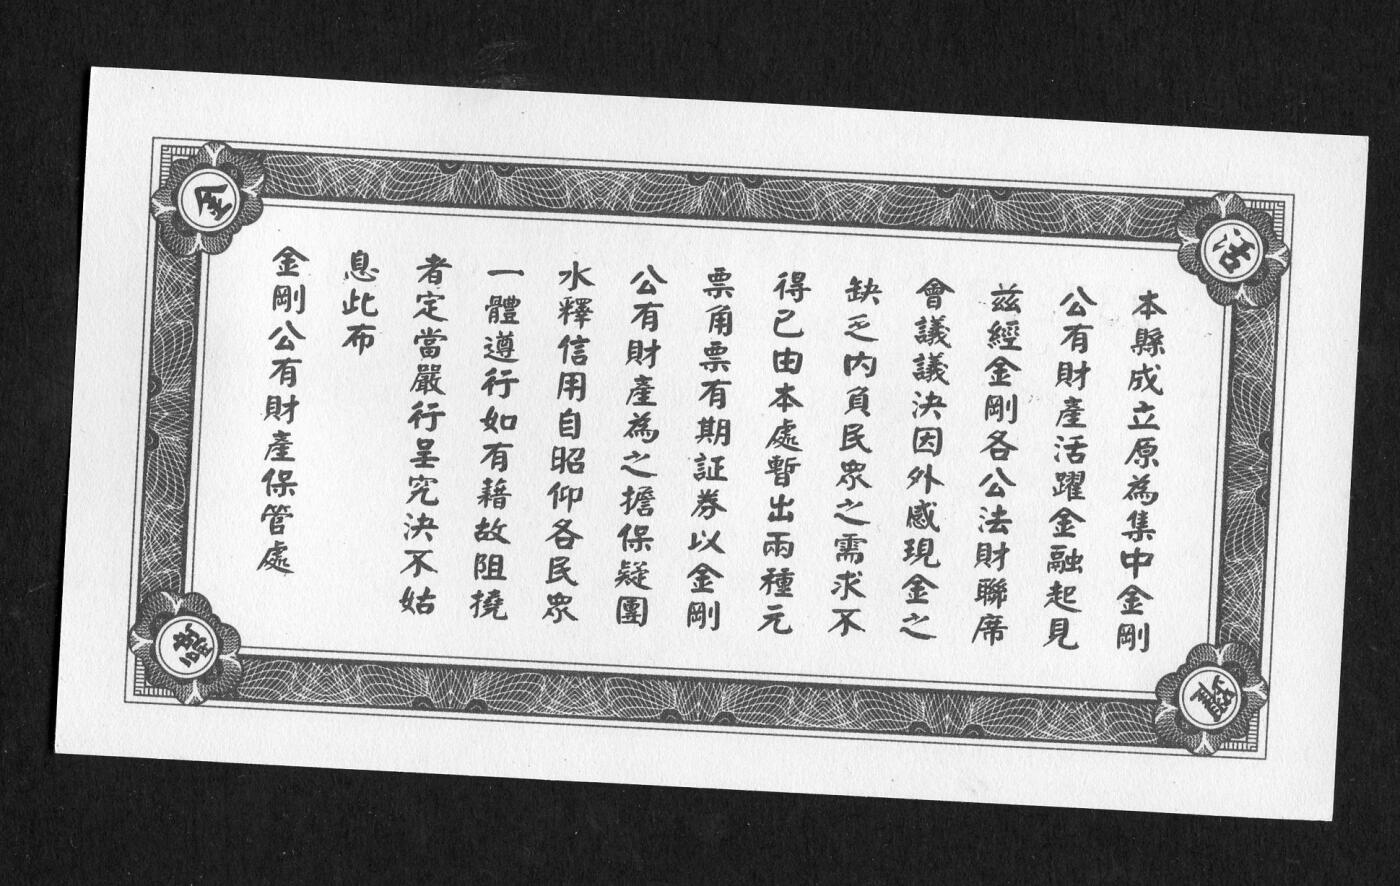 本縣成立原為集中金剛
公有財產活躍金融起見
茲經金剛各公法財聯席
會議議決因外感現金之
缺乏內負民眾之需求不
得已由本處暫出兩種元
票角票有期証券以金剛
公有財產為之擔保疑團
水釋信用自昭仰各民眾
一體遵行如有藉故阻撓
者定當嚴行呈究決不姑
息此布
金剛公有財產保管處
活
躍
金
融